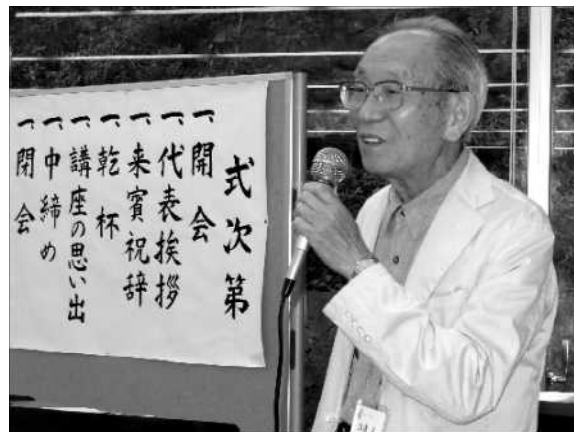 式次第
一、開会
一、代表挨拶
一、来賓祝辞
一、乾杯
一、講座の思い出
一、中締め
一、閉会